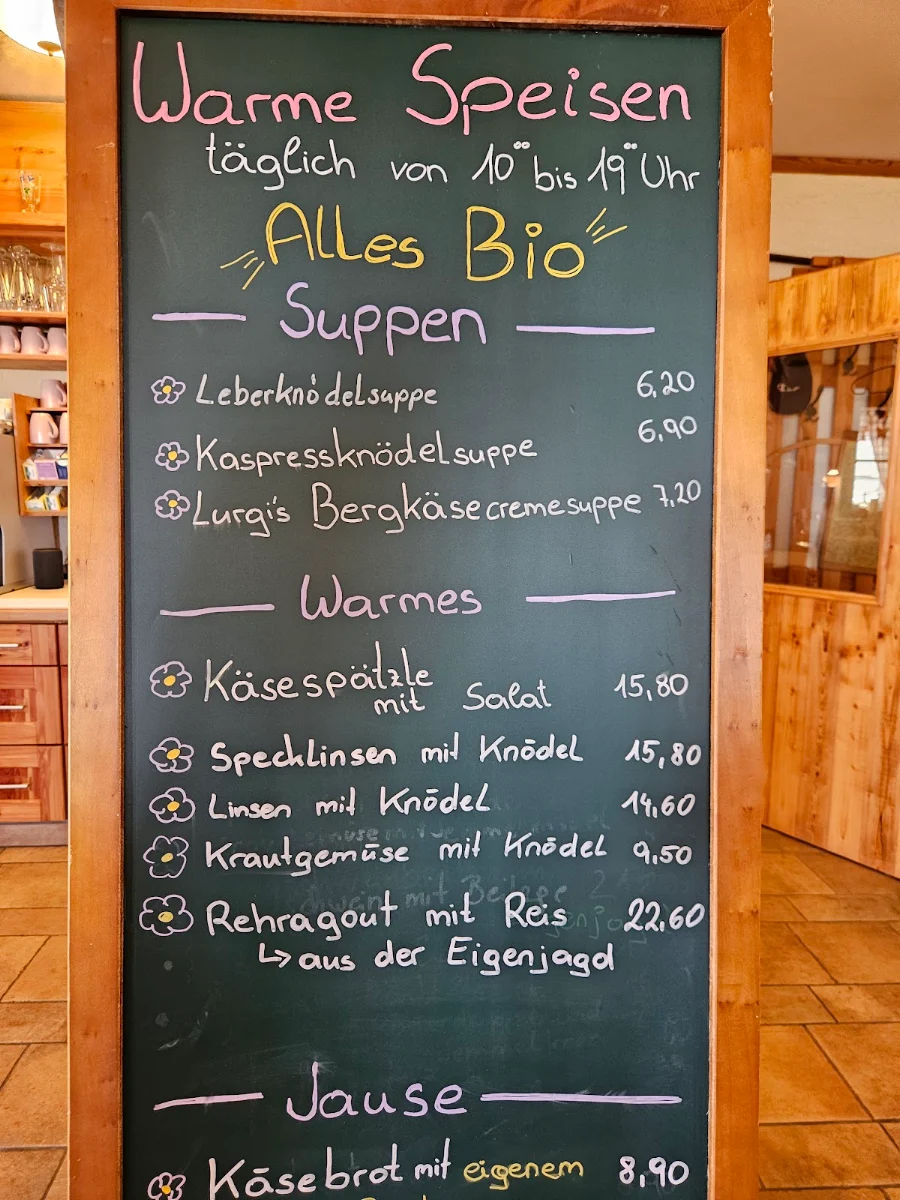 Warme Speisen
täglich von 10°° bis 19°° Uhr
Alles Bio
Suppen
Leberknödelsuppe 6,20
Kaspressknödelsuppe 6,90
Lurgi's Bergkäsecremesuppe 7,20
Warmes
Käsespätzle mit Salat 15,80
Specklinsen mit Knödel 15,80
Linsen mit Knödel 14,60
Krautgemüse mit Knödel 9,50
Rehragout mit Reis 22,60
↳ aus der Eigenjagd
Jause
Käsebrot mit eigenem 8,90